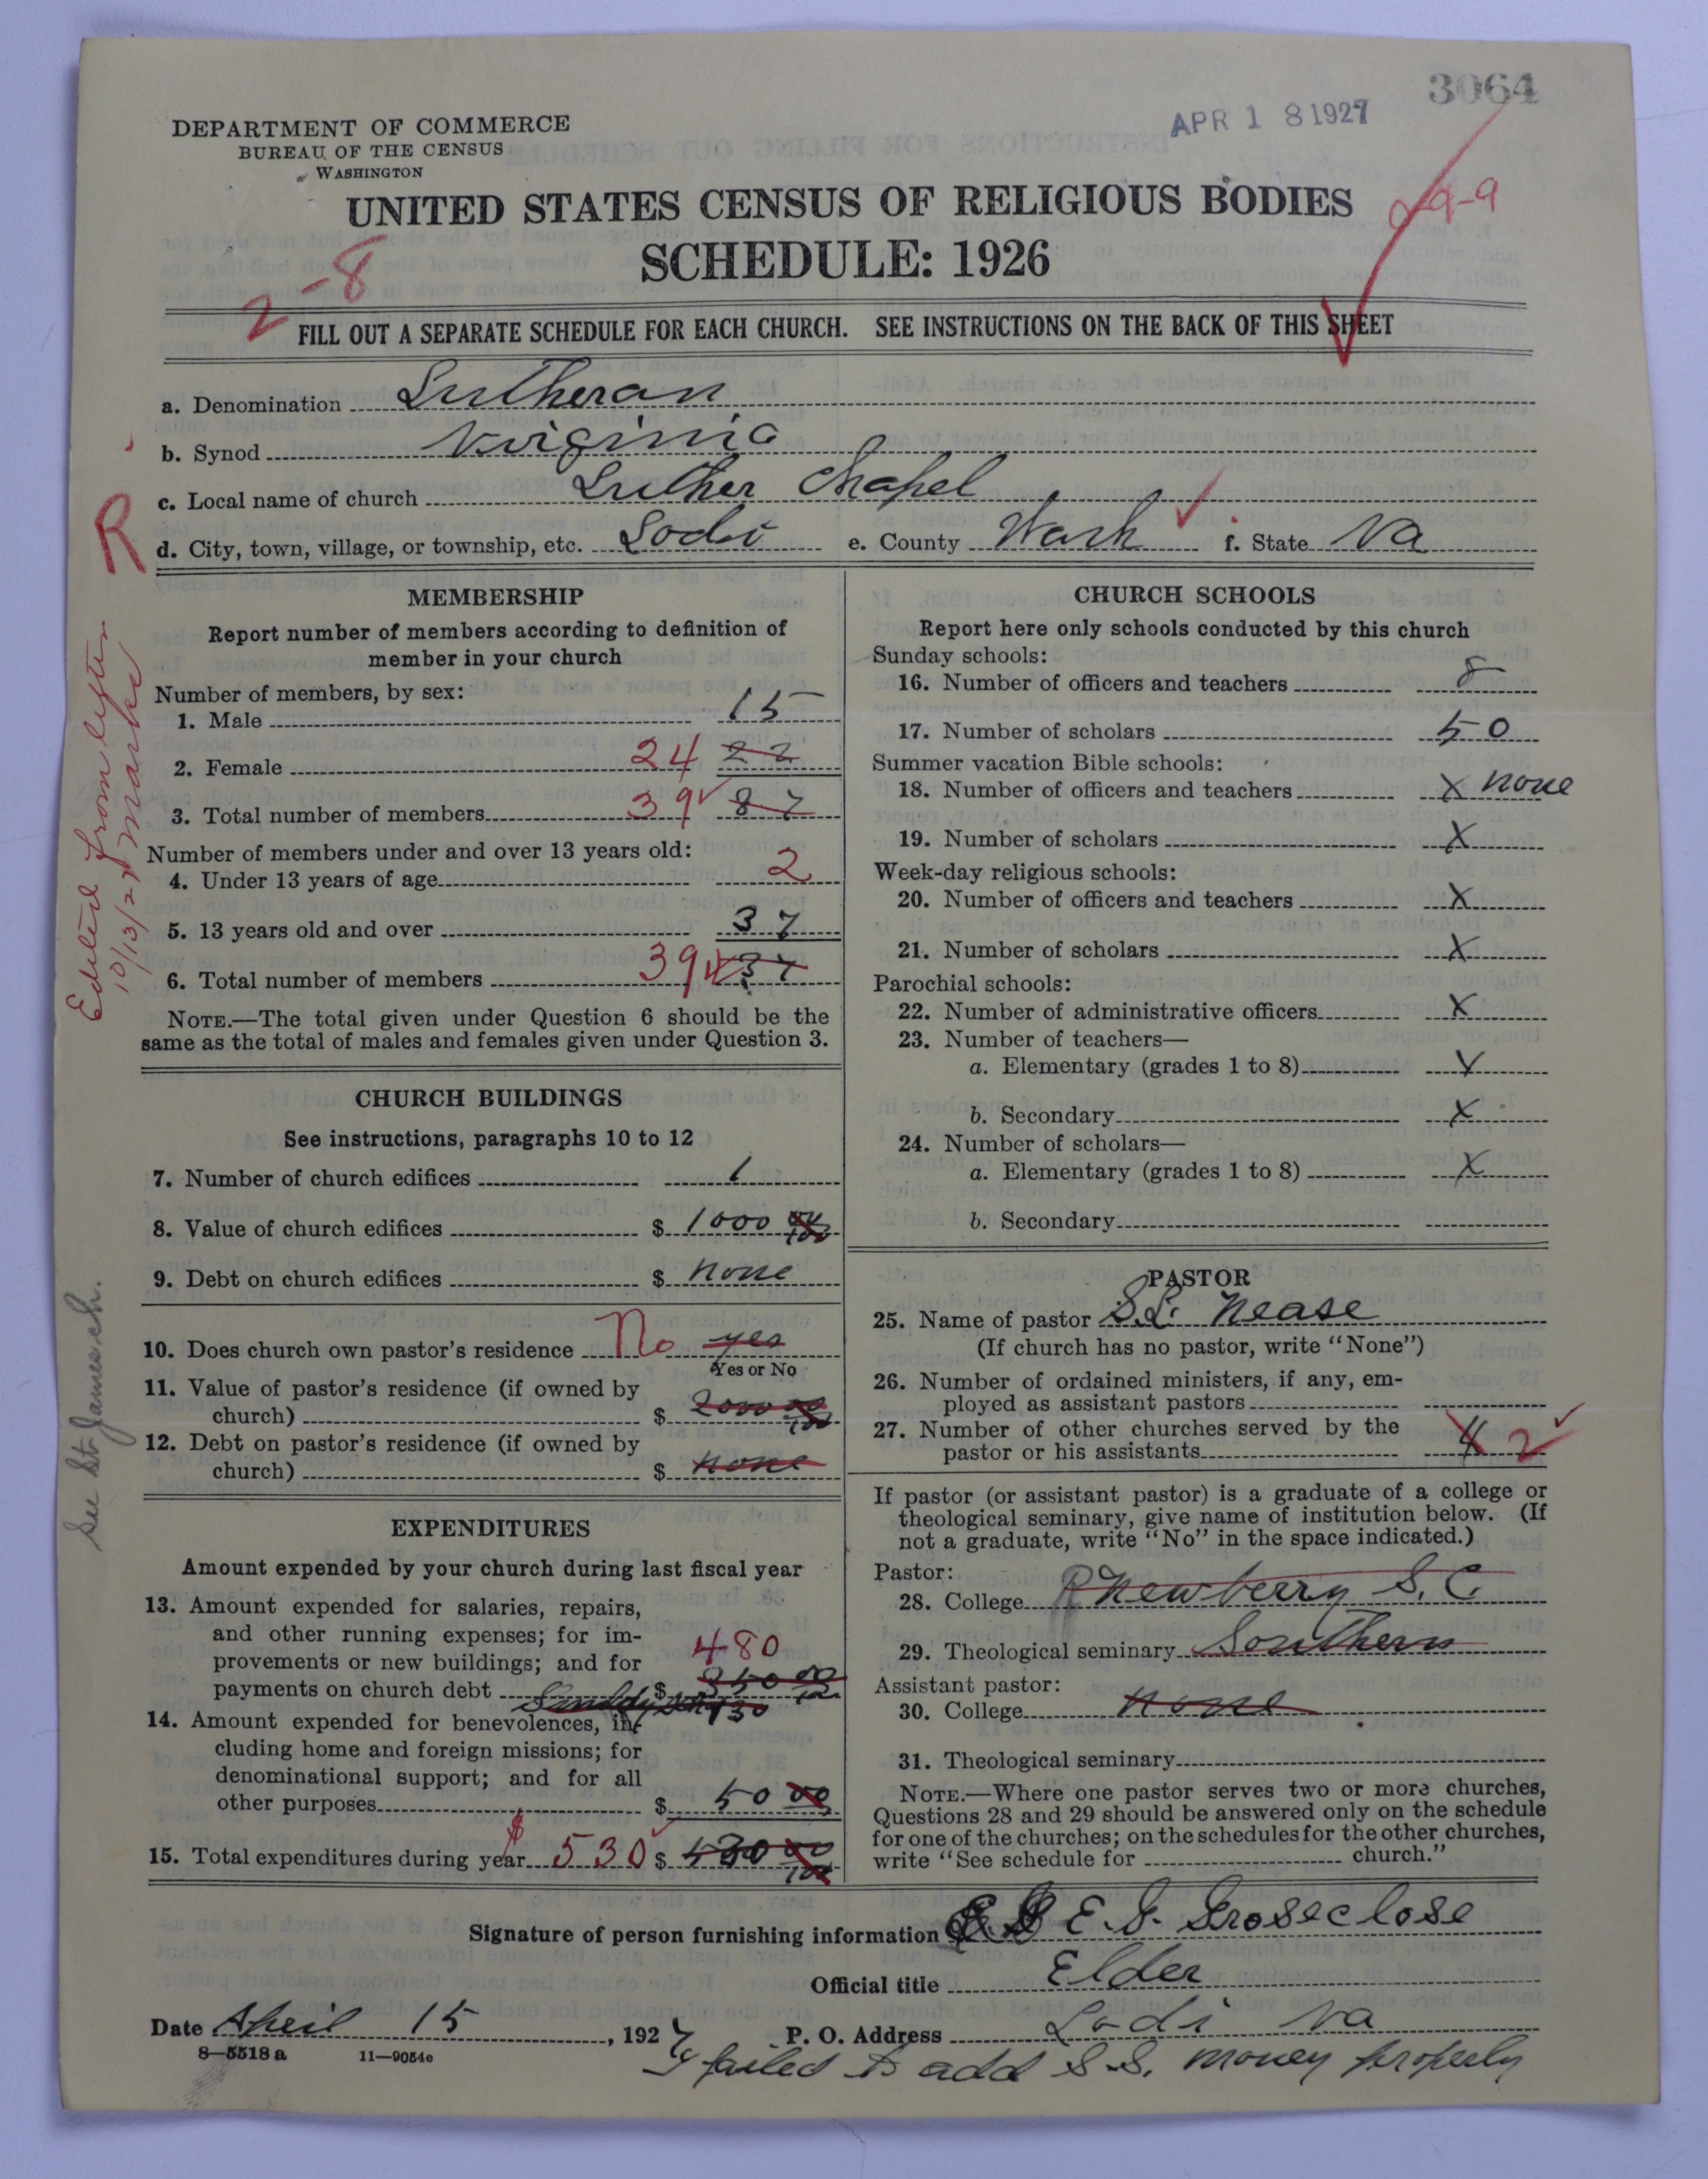 3064
APR 18 1927
DEPARTMENT OF COMMERCE
BUREAU OF THE CENSUS
WASHINGTON
UNITED STATES CENSUS OF RELIGIOUS BODIES
9-9
SCHEDULE: 1926
2-8
FILL OUT A SEPARATE SCHEDULE FOR EACH CHURCH. SEE INSTRUCTIONS ON THE BACK OF THIS SHEET
a. Denomination Lutheran
b. Synod Virginia
c. Local name of church Luther Chapel
d. City, town, village, or township, etc. Lodi e. County Wash f. State Va
R
Edited from letter
10/13/27
See St. James ch.
MEMBERSHIP
Report number of members according to definition of
member in your church
Number of members, by sex:
1. Male 15
2. Female 24 22
3. Total number of members 39 87
Number of members under and over 13 years old:
4. Under 13 years of age 2
5. 13 years old and over 37
6. Total number of members 39 37
NOTE.—The total given under Question 6 should be the
same as the total of males and females given under Question 3.
CHURCH BUILDINGS
See instructions, paragraphs 10 to 12
7. Number of church edifices 1
8. Value of church edifices $ 1000 00/100
9. Debt on church edifices $ none
10. Does church own pastor's residence No yes
Yes or No
11. Value of pastor's residence (if owned by
church) $ 2000 00/100
12. Debt on pastor's residence (if owned by
church) $ none
EXPENDITURES
Amount expended by your church during last fiscal year
13. Amount expended for salaries, repairs,
and other running expenses; for im-
provements or new buildings; and for 480
payments on church debt $ 350 00/100
130
14. Amount expended for benevolences, in-
cluding home and foreign missions; for
denominational support; and for all
other purposes $ 50 00
15. Total expenditures during year $ 530 $ 430 00/100
CHURCH SCHOOLS
Report here only schools conducted by this church
Sunday schools:
16. Number of officers and teachers 8
17. Number of scholars 50
Summer vacation Bible schools:
18. Number of officers and teachers X none
19. Number of scholars X
Week-day religious schools:
20. Number of officers and teachers X
21. Number of scholars X
Parochial schools:
22. Number of administrative officers X
23. Number of teachers—
a. Elementary (grades 1 to 8) X
b. Secondary X
24. Number of scholars—
a. Elementary (grades 1 to 8) X
b. Secondary
PASTOR
25. Name of pastor S.L. Nease
(If church has no pastor, write "None")
26. Number of ordained ministers, if any, em-
ployed as assistant pastors
27. Number of other churches served by the
pastor or his assistants 4 2
If pastor (or assistant pastor) is a graduate of a college or
theological seminary, give name of institution below. (If
not a graduate, write "No" in the space indicated.)
Pastor:
28. College R Newberry S. C.
29. Theological seminary Southern
Assistant pastor:
30. College none
31. Theological seminary
NOTE.—Where one pastor serves two or more churches,
Questions 28 and 29 should be answered only on the schedule
for one of the churches; on the schedules for the other churches,
write "See schedule for church."
Signature of person furnishing information E. S. Groseclose
Official title Elder
Date April 15, 1927 P. O. Address Lodi Va
8—5518 a 11—9054c
I failed to add S.S. money properly